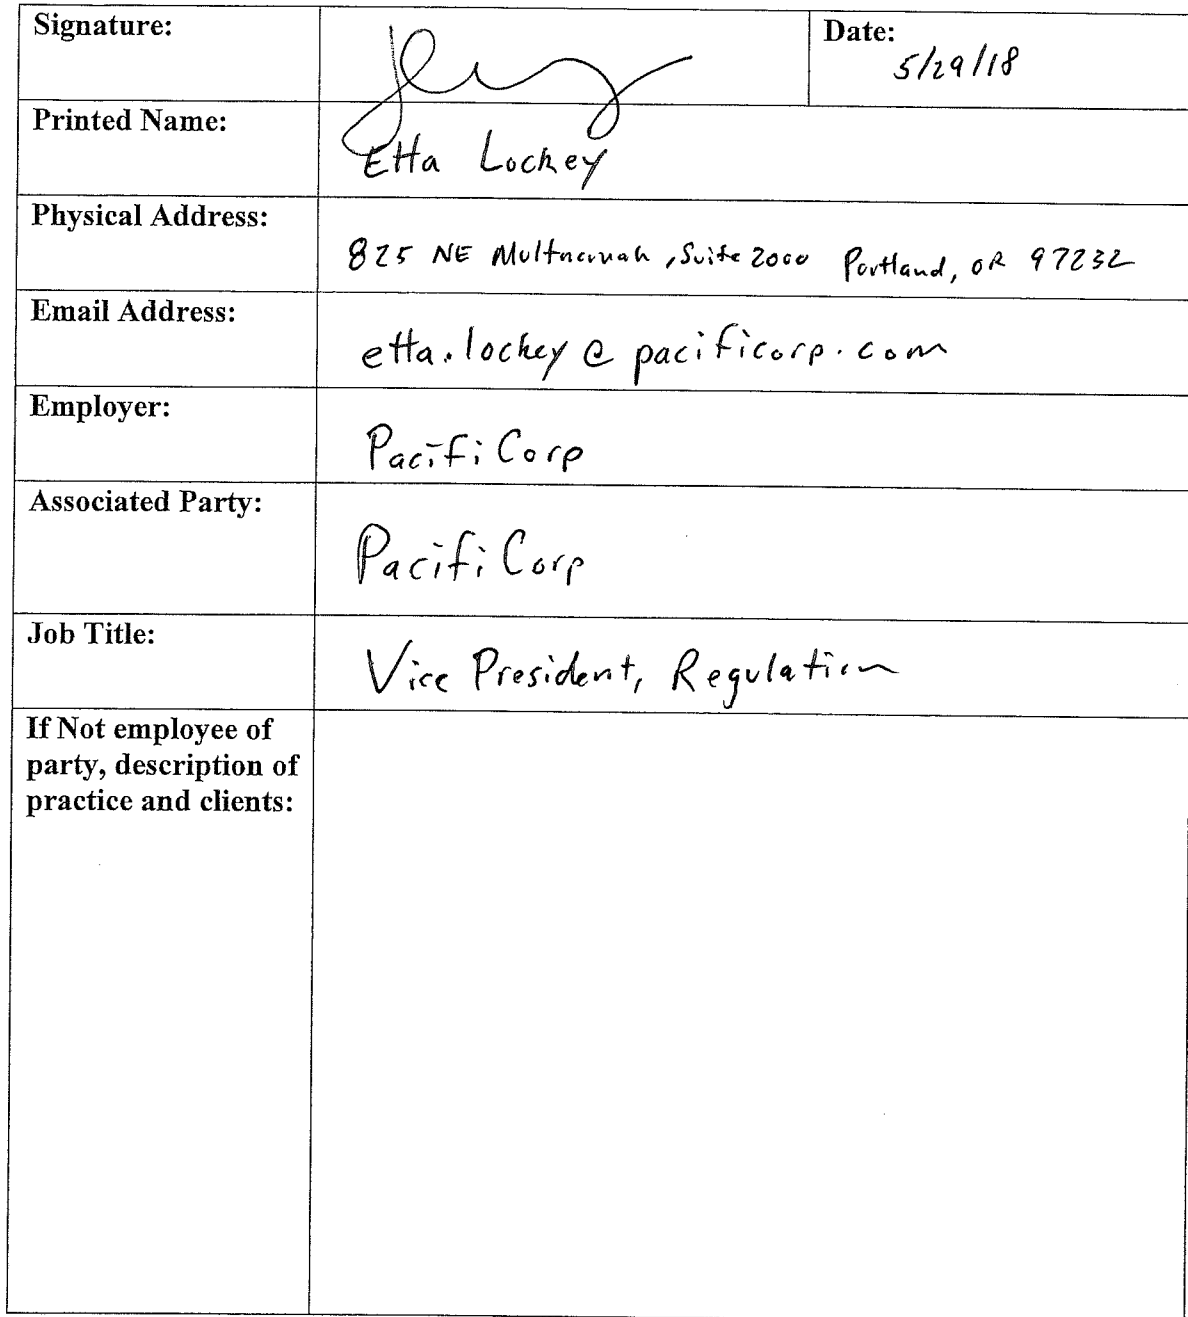 Signature:
Date:
5/29/18
Printed Name:
Etta Lockey
Physical Address:
825 NE Multnomah, Suite 2000 Portland, OR 97232
Email Address:
etta.lockey@pacificorp.com
Employer:
PacifiCorp
Associated Party:
PacifiCorp
Job Title:
Vice President, Regulation
If Not employee of
party, description of
practice and clients: